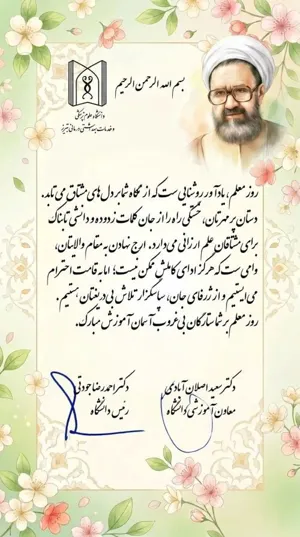 بسم الله الرحمن الرحیم
دانشگاه علوم پزشکی
و خدمات بهداشتی درمانی تبریز
روز معلم، یادآور روشنایی‌ست که از نگاه شما بر دل‌های مشتاق می‌تابد.
دستان پر مهرتان، خستگی راه را از جان کلمات زدوده و دانشی تابناک
برای مشتاقان علم ارزانی می‌دارد. ارج نهادن به مقام والاتان،
وامی ست که هرگز ادای کاملش ممکن نیست؛ اما به قامت احترام
می‌ایستیم و از ژرفای جان، سپاسگزار تلاش بی‌دریغتان هستیم.
روز معلم بر شما ستارگان بی‌غروب آسمان آموزش مبارک.
دکتر سعید اصلان آبادی
معاون آموزشی دانشگاه
دکتر احمدرضا جودتی
رئیس دانشگاه